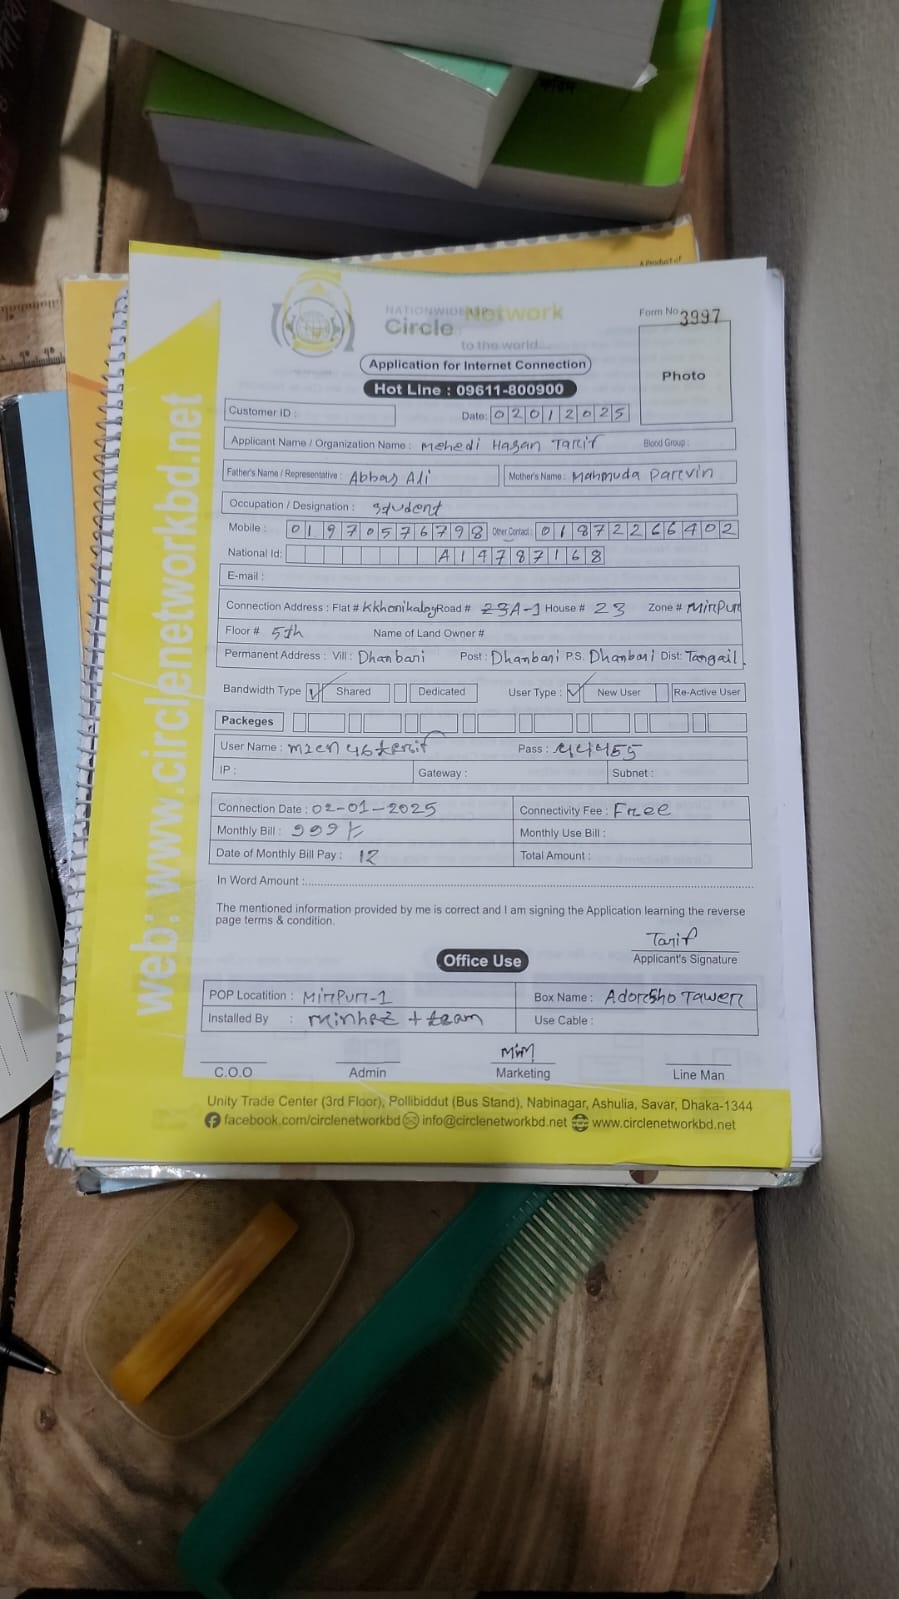 A Product of
NATIONWIDE
Circle Network
to the world...
Form No 3997
Photo
Application for Internet Connection
Hot Line : 09611-800900
Customer ID :
Date: 02012025
Applicant Name / Organization Name : Mehedi Hasan Tarif Blood Group :
Father's Name / Representative : Abbas Ali Mother's Name : Mahmuda Parevin
Occupation / Designation : student
Mobile : 01970576798 Other Contact: 01872266402
National Id: A14787168
E-mail :
Connection Address : Flat # Road # 23A-1 House # 23 Zone # Mirpur
Floor # 5th Name of Land Owner #
Permanent Address : Vill: Dhanbari Post : Dhanbari P.S. Dhanbari Dist: Tangail
Bandwidth Type Shared Dedicated User Type : New User Re-Active User
Packeges
User Name : Pass :
IP : Gateway : Subnet :
Connection Date : 02-01-2025 Connectivity Fee : Free
Monthly Bill : 999 Monthly Use Bill :
Date of Monthly Bill Pay : 12 Total Amount :
In Word Amount :
The mentioned information provided by me is correct and I am signing the Application learning the reverse
page terms & condition.
Tarif
Applicant's Signature
Office Use
POP Locatition : Mirpur-1 Box Name : Adorsho Tawer
Installed By : + team Use Cable :
C.O.O Admin Marketing Line Man
Unity Trade Center (3rd Floor), Pollibiddut (Bus Stand), Nabinagar, Ashulia, Savar, Dhaka-1344
facebook.com/circlenetworkbd info@circlenetworkbd.net www.circlenetworkbd.net
web: www.circlenetworkbd.net